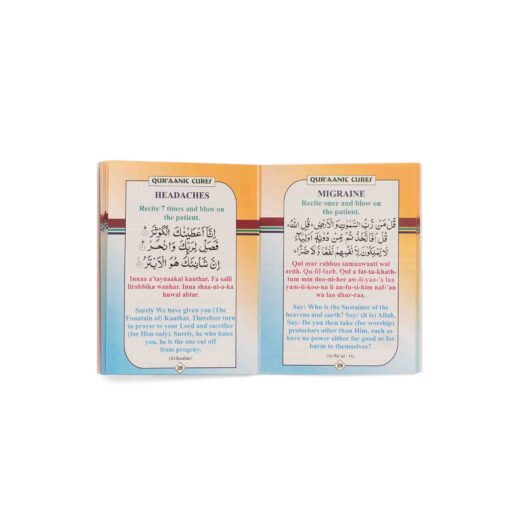 QUR'AANIC CURES
HEADACHES
Recite 7 times and blow on
the patient.
إِنَّا أَعْطَيْنَكَ الْكَوْثَرَ
فَصَلِّ لِرَبِّكَ وَانْحَرْ
إِنَّ شَانِئَكَ هُوَ الْأَبْتَرُ
Innaa a'taynaakal kauthar. Fa salli
lirabbika wanhar. Inna shua-ni-a-ka
huwal abtar.
Surely We have given you (The
Fountain of) Kauthar. Therefore turn
in prayer to your Lord and sacrifice
(for Him only). Surely, he who hates
you, he is the one cut off
from progeny.
(Al Kauthar)
28
QUR'AANIC CURES
MIGRAINE
Recite once and blow on
the patient.
قُلْ مَنْ رَّبُّ السَّمٰوٰتِ وَالْاَرْضِ قُلِ اللّٰهُ
قُلْ اَفَاتَّخَذْتُمْ مِّنْ دُوْنِهٖٓ اَوْلِيَآءَ
لَا يَمْلِكُوْنَ لِاَنْفُسِهِمْ نَفْعًا وَّلَا ضَرًّا
Qul mar rabbus samaawaati wal
ardh. Qu-lil-laah. Qul a fat-ta-khath-
tum min doo-ni-hee aw-li-yaa-'a laa
yam-li-koo-na li an-fu-si-him naf-'an
wa laa dhar-raa.
Say: Who is the Sustainer of the
heavens and earth? Say: (It is) Allah.
Say: Do you then take (for worship)
protectors other than Him, such as
have no power either for good or for
harm to themselves?
29